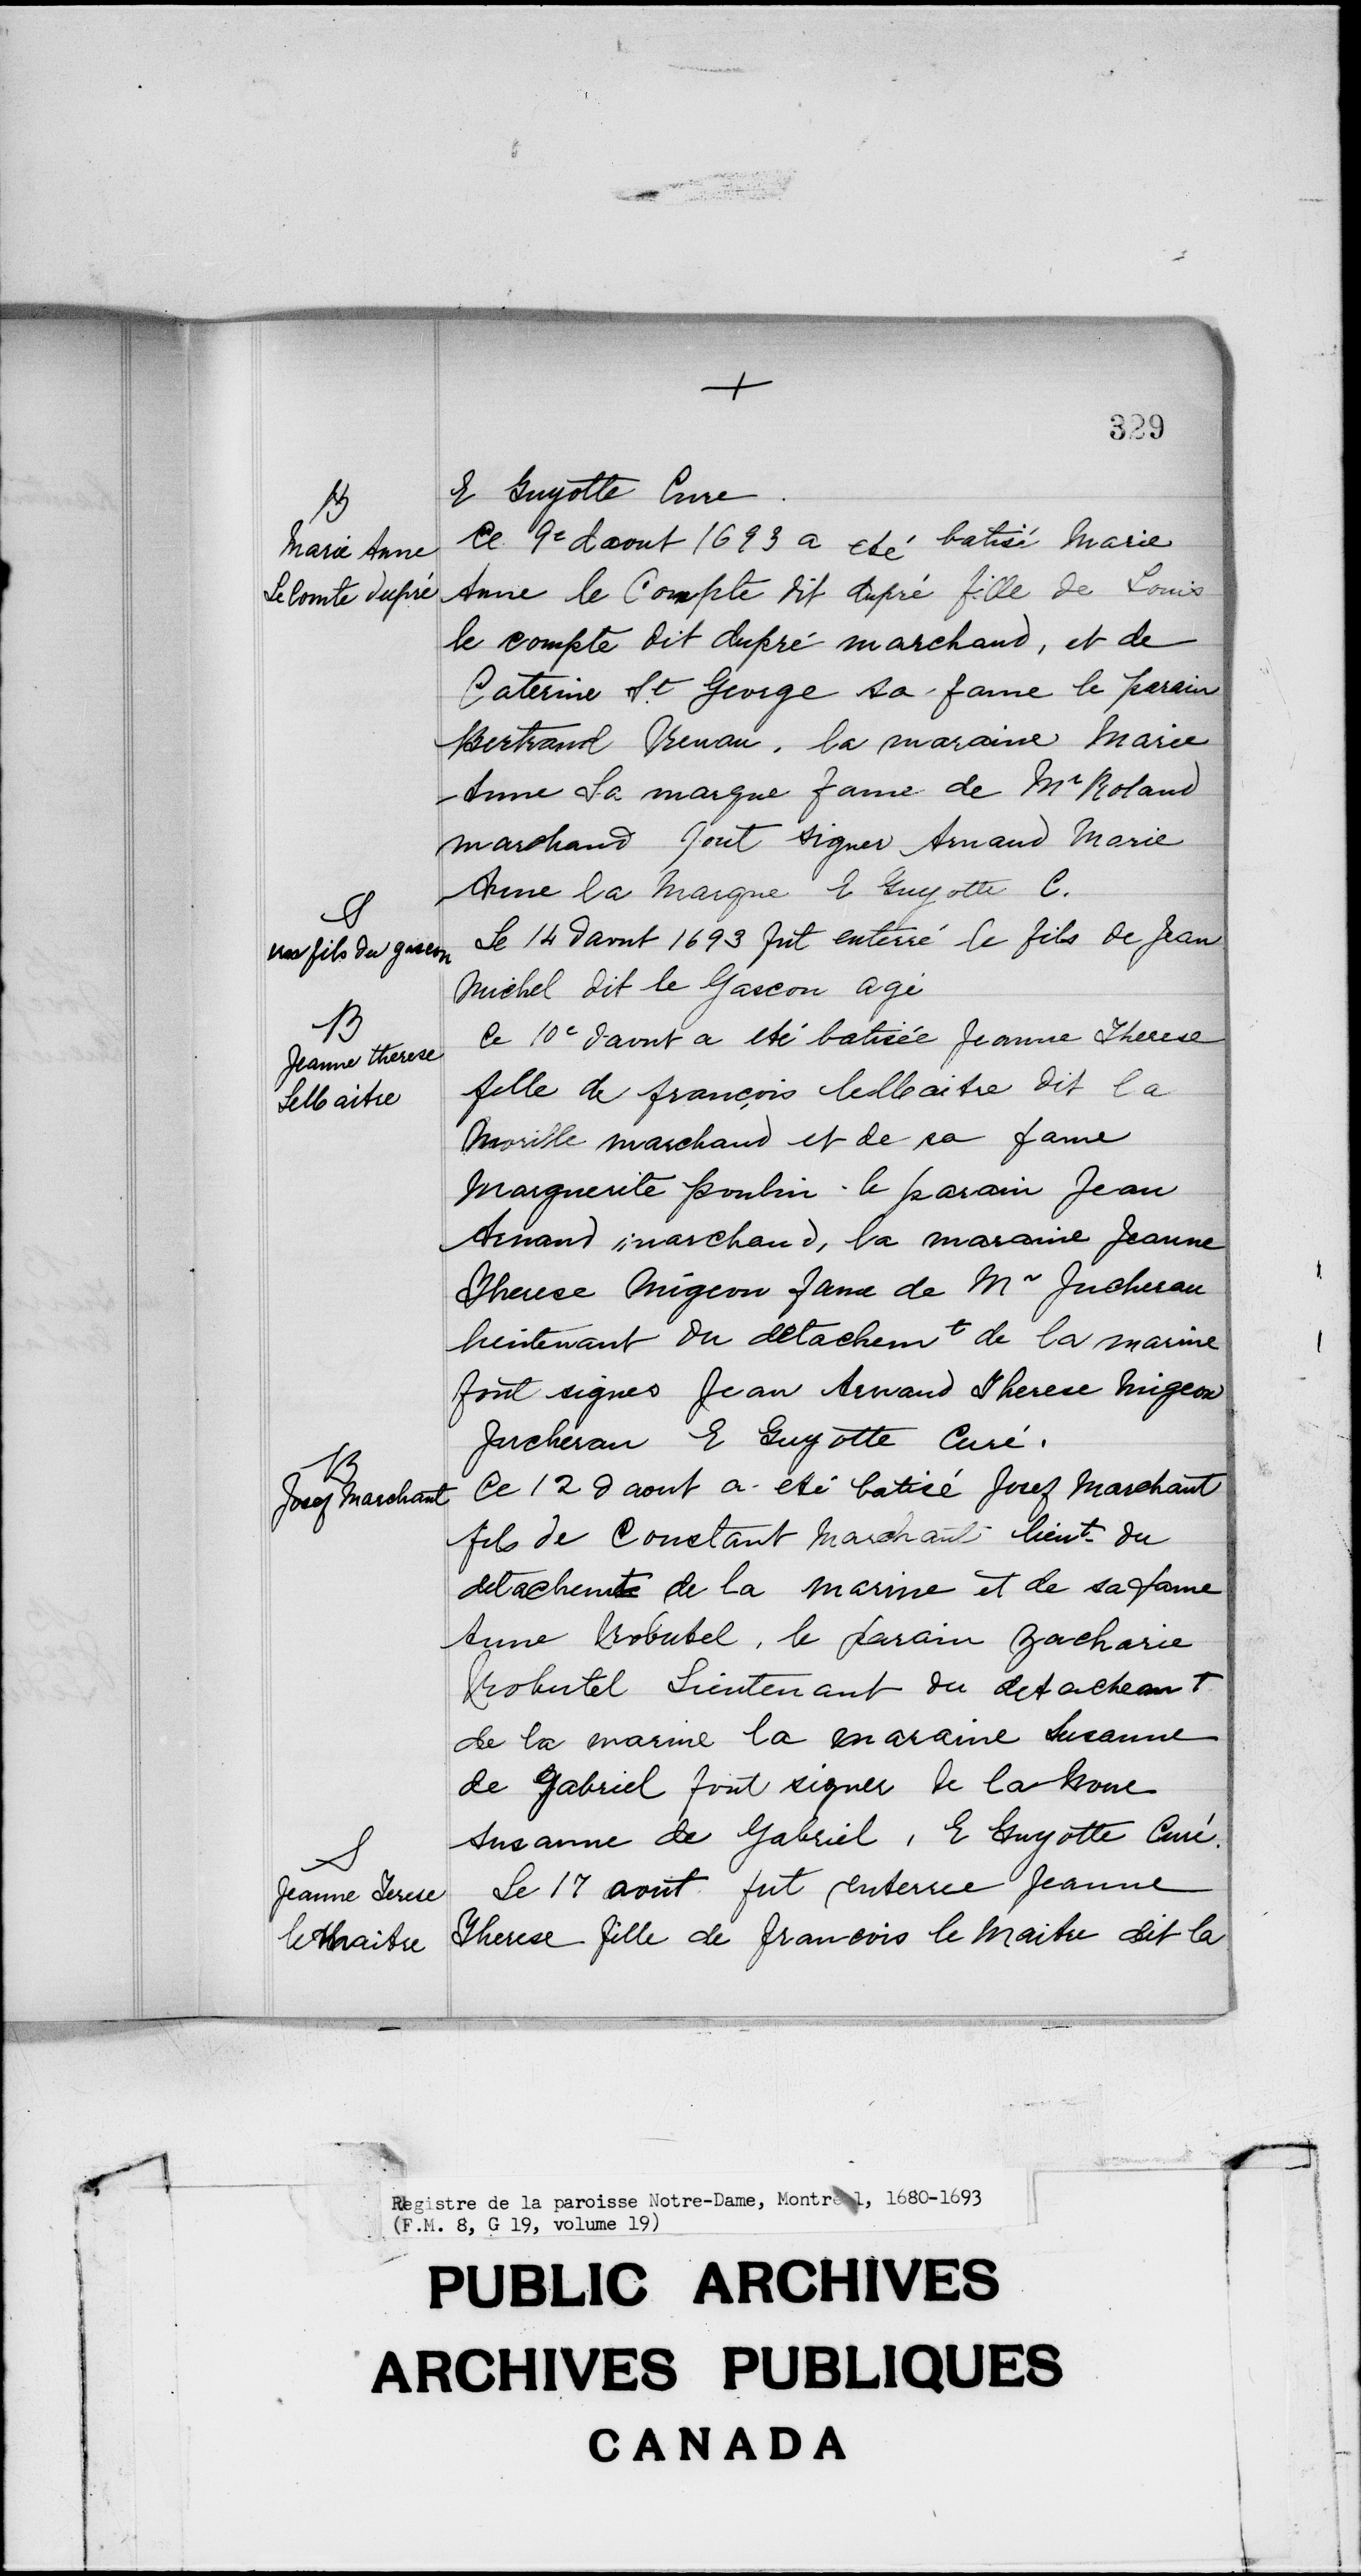 329
E Guyotte Cure.
B
Marie Anne
LeComte dupré
Ce 9e daout 1693 a eté batisé Marie
Anne le Compte dit dupré fille de Louis
le compte dit dupré marchand, et de
Caterine St George sa fame le parain
Bertrand Renau. la maraine Marie
Anne La marque fame de Mr Roland
marchand font signer Arnaud Marie
Anne la Marque E Guyotte C.
S
un fils du gascon
Le 14 daout 1693 fut enterré le fils de Jean
Michel dit le Gascon agé
B
Jeanne therese
LeMaitre
Ce 10e daout a eté batisée Jeanne Therese
fille de françois leMaitre dit la
Morille marchand et de sa fame
Marguerite poulin. le parain Jean
Arnaud marchand, la maraine Jeanne
Therese Migeon fame de Mr Jucherau
lieutenant du détachemt de la marine
font signes Jean Arnaud Therese Migeon
Jucherau E Guyotte Curé.
B
Josef Marchant
Ce 12 d aout a eté batisé Josef Marchant
fils de Constant Marchant lieut du
detachemt de la marine et de sa fame
Anne Robutel, le parain Zacharie
Robutel Lieutenant du detachemt
de la marine la maraine Susanne
de Gabriel font signer de la Noue
Susanne de Gabriel, E Guyotte Curé.
S
Jeanne Terese
le Maitre
Le 17 aout fut enterree Jeanne
Therese fille de francois le Maitre dit la
Registre de la paroisse Notre-Dame, Montreal, 1680-1693
(F.M. 8, G 19, volume 19)
PUBLIC ARCHIVES
ARCHIVES PUBLIQUES
CANADA